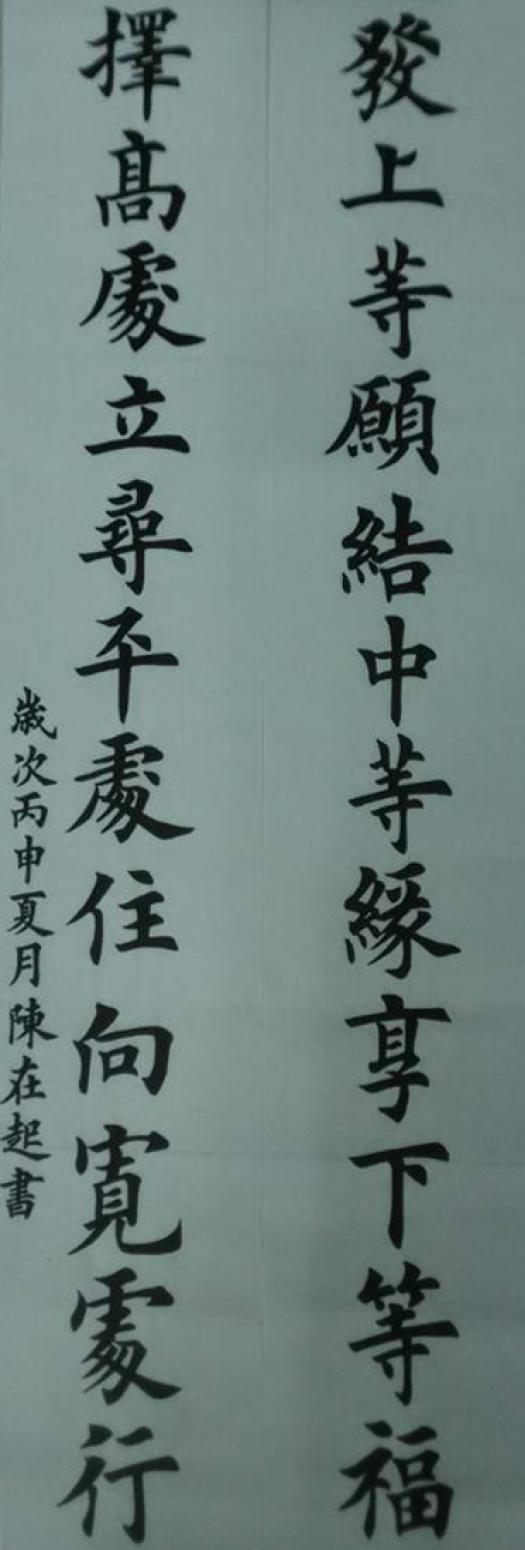 發上等願結中等緣享下等福
擇高處立尋平處住向寬處行
歲次丙申夏月陳在起書